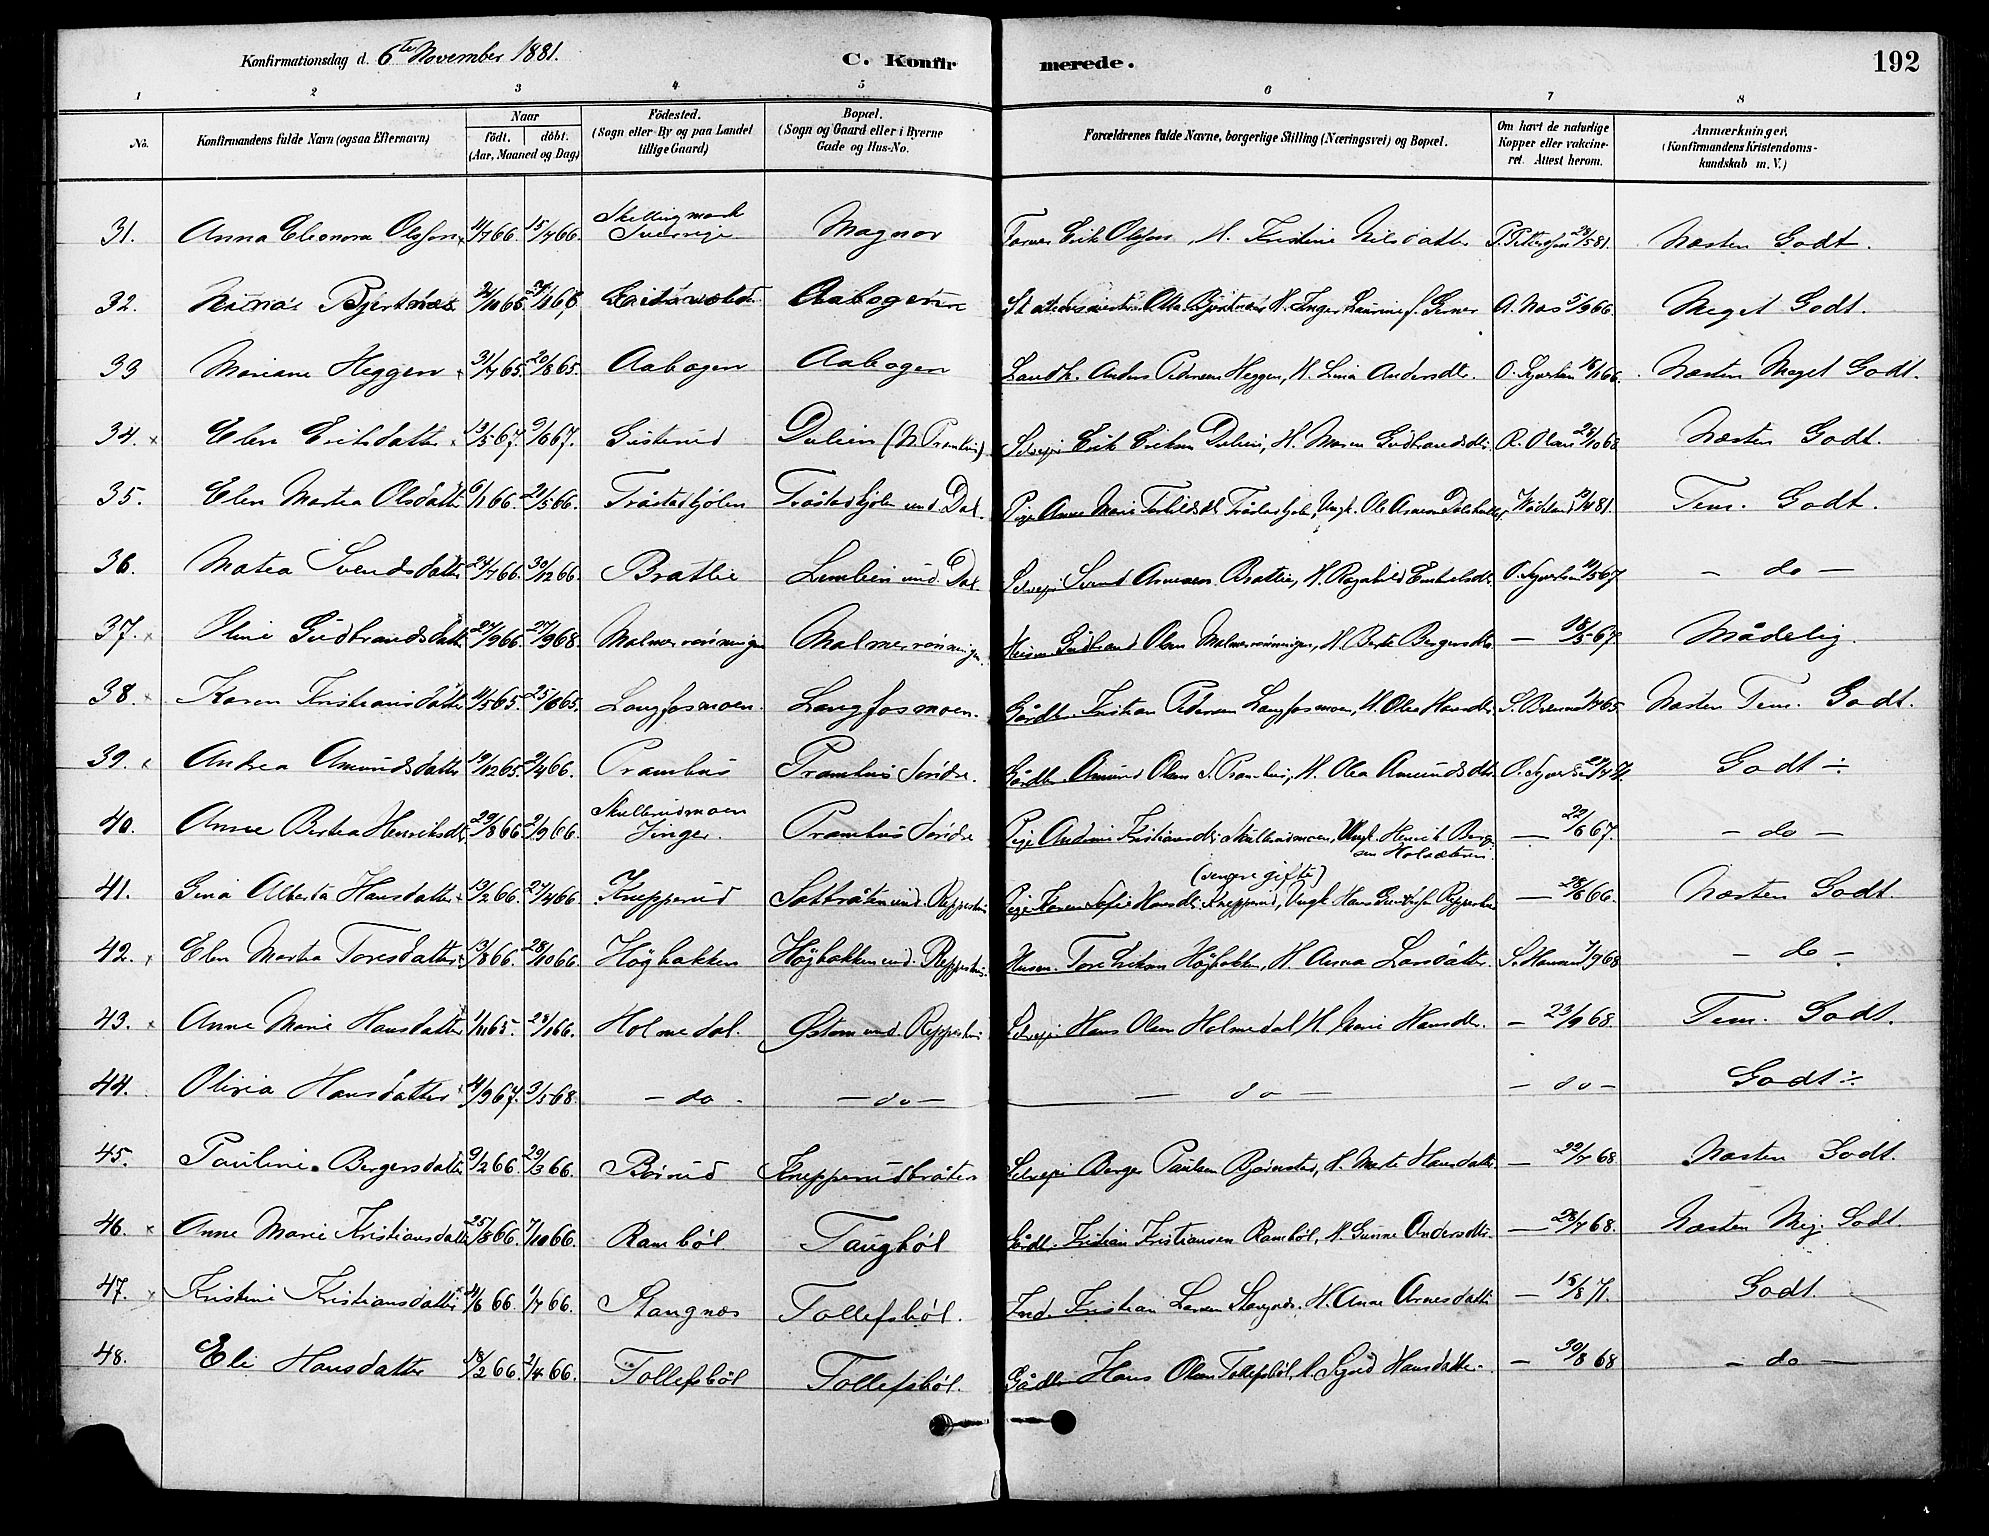 Konfirmationsdag d. 6te November 1881.
C. Konfirmerede.
192
1 2 3 4 5 6 7 8
No.
Konfirmandens fulde Navn (ogsaa Efternavn)
Naar
födt. döbt.
(Aar, Maaned og Dag)
Födested.
(Sogn eller By og paa Landet tillige Gaard)
Bopæl.
(Sogn og Gaard eller i Byerne Gade og Hus-No.
Forældrenes fulde Navne, borgerlige Stilling (Næringsvei) og Bopæl.
Om havt de naturlige Kopper eller vakcineret. Attest herom.
Anmærkninger.
(Konfirmandens Kristendomskundskab m. V.)
31. Anna Eleonora Olsson 15/7 66. Skillingmark Sverrige Magnor Erik Olsson, H. Kristine Nilsdatter Næsten Godt.
32. Aabogen H. Inger Laurine f. 5/9 66. Meget Godt.
33 Mariane Heggen 31/7 65. 20/8 65. Aabogen Aabogen Anders Pedersen Heggen, H. Lina Andersdtr. Næsten Meget Godt.
34. Elen Eriksdatter 13/5 67. 9/6 67. Gusterud Dulien Selvejer Erik Eriksen Dulien, H. Maren Gudbrandsdtr. Næsten Godt.
35. Elen Martea Olsdatter 21/5 66. Tråstadkjølen Tråstadkjølen und. Dal. Pige Anne Marie Ungk. Ole Tem. Godt.
36. Matea Svendsdatter 24/7 66. 30/12 66. Bratlie Lunlien und. Dal. Selvejer Svend Arnesen Bratlie, H. Ragnhild – do –
37. Oline Gudbrandsdatter 27/9 66. 27/9 68. Malmerrønningen Malmerrønningen. Gudbrand Olsen Malmerrønningen, H. Berte Bergersdtr. – 18/5 67. Mådelig.
38. Karen Kristiansdatter 11/5 65. 25/6 65. Langfosmoen. Langfosmoen. Gårdbr. Kristian Pedersen Langfosmoen, H. Olea Hansdtr. Næsten Tem. Godt.
39. Andrea Amundsdatter 19/12 65. 2/4 66. Pramhus Pramhus Søndre. Gårdbr. Amund Olsen S. Pramhus, H. Olea Amundsdtr. Godt ÷
40. Anne Bertea Henriksdtr. 29/8 66. 2/9 66. Skullerudmoen Vinger. Pramhus Søndre Pige Andrine Kristiansdtr. Skullerudmoen, Ungk. Henrik Bergersen Holsæteren. – 22/6 67. – do –
41. Gina Alberta Hansdatter 19/2 66. 27/4 66 Knepperud und. Reppershus Pige Karen Sofie Hansdtr. Knepperud, (senere gifte) Ungk. Hans – 28/8 66. Næsten Godt.
42. Elen Martea Toresdatter 13/8 66. 28/10 66. Høgbakken Høgbakken und. Reppershus Husm. Tore Eriksen Høgbakken, H. Anna Larsdatter. S. Hansen 7/9 68 – do –
43. Anne Marie Hansdatter 1/11 65. 28/1 66. Holmedal. Østom und. Reppershus Selvejer Hans Olsen Holmedal, H. Marie Hansdtr. – 23/9 68. Tem. Godt.
44. Olivia Hansdatter 4/9 67. 3/5 68. – do – – do – – do – – do – Godt ÷
45. Pauline Bergersdatter 9/2 66. 29/3 66. Børud Knepperudbråten Selvejer Berger Paulsen Bjørnstad, H. Marte Hansdatter. – 22/7 68 Næsten Godt.
46. Anne Marie Kristiansdatter 25/8 66. 7/10 66. Rambøl Taugbøl Gårdbr. Kristian Kristiansen Rambøl, H. Gunne Andersdtr. – 28/7 68. Næsten Meg. Godt.
47. Kristine Kristiansdatter 4/6 66. 1/7 66. Stangnæs Tollefsbøl. Ind. Kristian Larsen Stangnæs. H. Anne Arnesdatter – 15/8 71. Godt.
48. Eli Hansdatter 18/2 66. 2/4 66. Tollefsbøl Tollefsbøl. Gårdbr. Hans Olsen Tollefsbøl, H. Sigrid Hansdatter. – 30/8 68 – do –